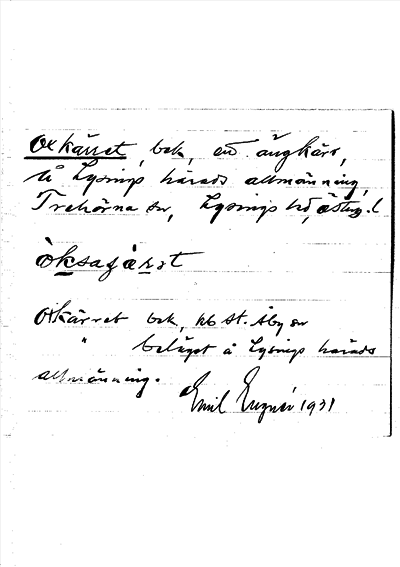 Oxkärret, bek, ett ängkärr,
å Lysings härads allmänning,
Trehörna sn, Lysings hd, Östg. l
òksaɡàrət
Oxkärret bek, kb St. Åby sn
" beläget å Lysings härads
allmänning.
Emil 1931